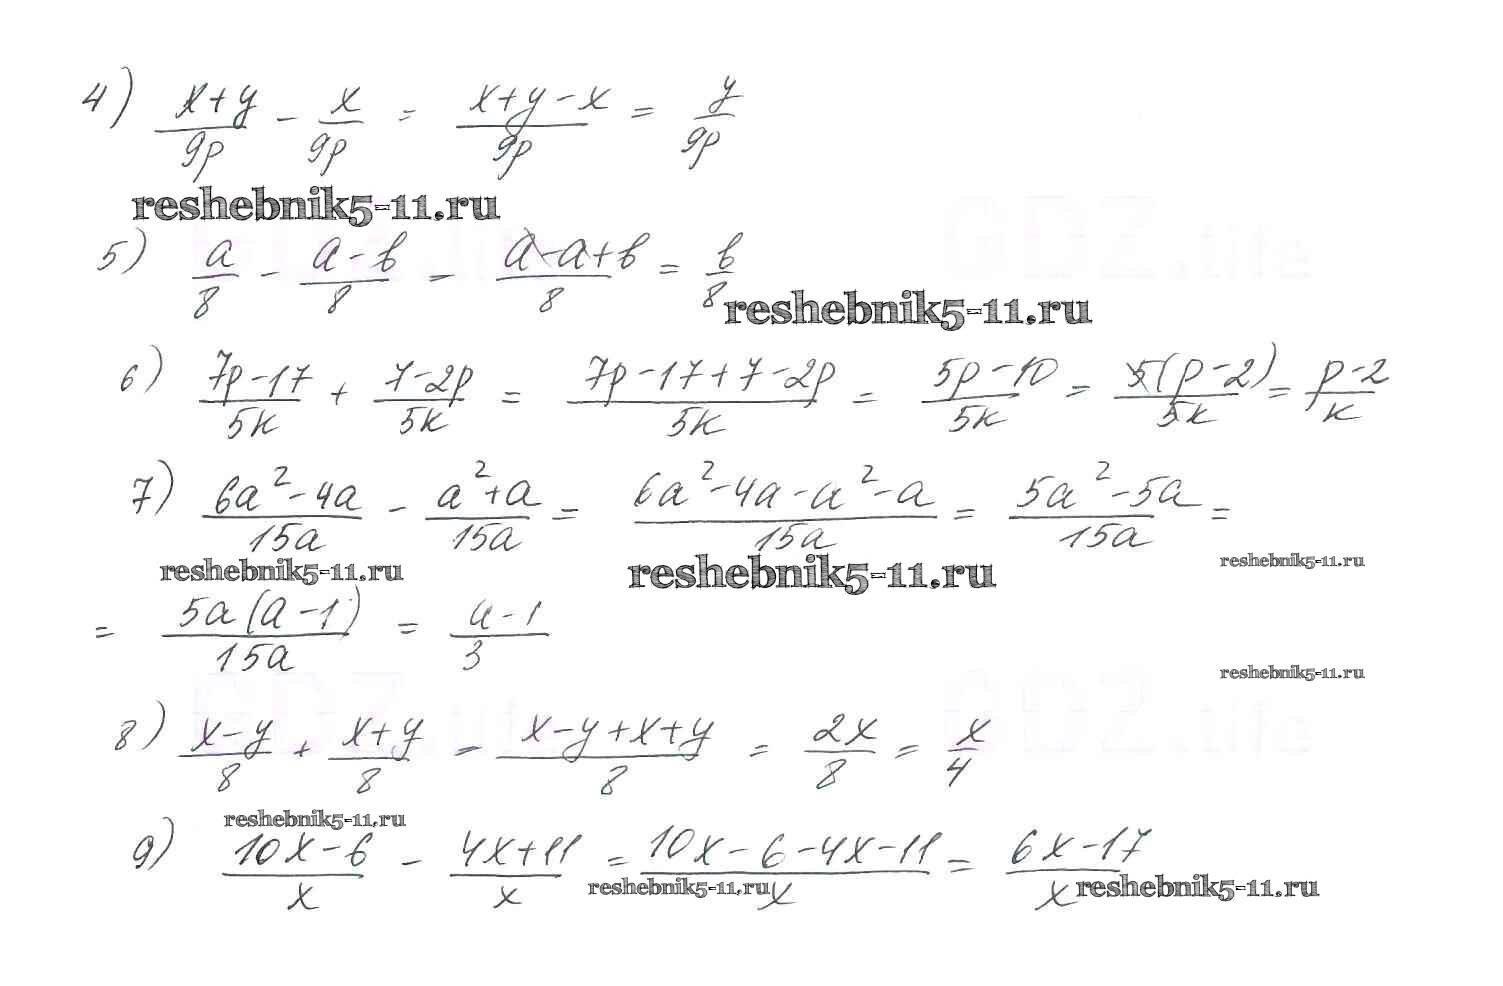 4) (x+y)/9p - x/9p = (x+y-x)/9p = y/9p
reshebnik5-11.ru
5) a/8 - (a-b)/8 = (a-a+b)/8 = b/8
reshebnik5-11.ru
6) (7p-17)/5k + (7-2p)/5k = (7p-17+7-2p)/5k = (5p-10)/5k = 5(p-2)/5k = (p-2)/k
7) (6a²-4a)/15a - (a²+a)/15a = (6a²-4a-a²-a)/15a = (5a²-5a)/15a =
reshebnik5-11.ru reshebnik5-11.ru reshebnik5-11.ru
= 5a(a-1)/15a = (a-1)/3
reshebnik5-11.ru
8) (x-y)/8 + (x+y)/8 = (x-y+x+y)/8 = 2x/8 = x/4
reshebnik5-11.ru
9) (10x-6)/x - (4x+11)/x = (10x-6-4x-11)/x = (6x-17)/x
reshebnik5-11.ru reshebnik5-11.ru